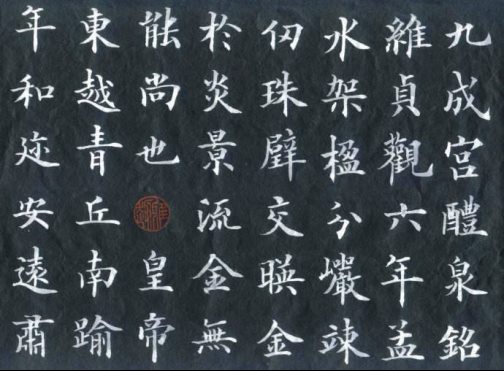 九成宮醴泉銘
維貞觀六年孟
水架楹分巖竦
仞珠璧交暎金
於炎景流金無
能尚也皇帝
東越青丘南踰
年和迩安遠肅